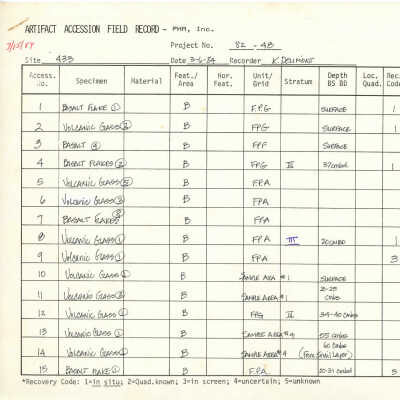 ARTIFACT ACCESSION FIELD RECORD - PHR, Inc.
7/15/84
Project No. 82 - 48
Site 433 Date 3-6-84 Recorder
Access. No. Specimen Material Feat./Area Hor. Feat. Unit/Grid Stratum Depth BS BD Loc. Quad. Rec. Code
1 BASALT FLAKE (1) B FPG SURFACE 1
2 VOLCANIC GLASS B FPG SURFACE 1
3 BASALT B FPF SURFACE
4 BASALT FLAKES (2) B FPG II 37cmbd 1
5 VOLCANIC GLASS B FPA
6 VOLCANIC GLASS B FPA
7 BASALT FLAKES B FPA
8 VOLCANIC GLASS (1) B FPA III 20cmbd 1
9 VOLCANIC GLASS (1) B FPA 3
10 VOLCANIC GLASS (1) B SAMPLE AREA #1 SURFACE
11 VOLCANIC GLASS B SAMPLE AREA #1 cmbs
12 VOLCANIC GLASS (1) B FPG II 34-40 cmbs
13 VOLCANIC GLASS (1) B SAMPLE AREA #4 55 cmbs
14 VOLCANIC GLASS B SAMPLE AREA #4 60 cmbs (From Layer)
15 BASALT FLAKE (1) B FPA 20-31 cmbd 5
*Recovery Code: 1=in situ; 2=Quad.known; 3=in screen; 4=uncertain; 5=unknown